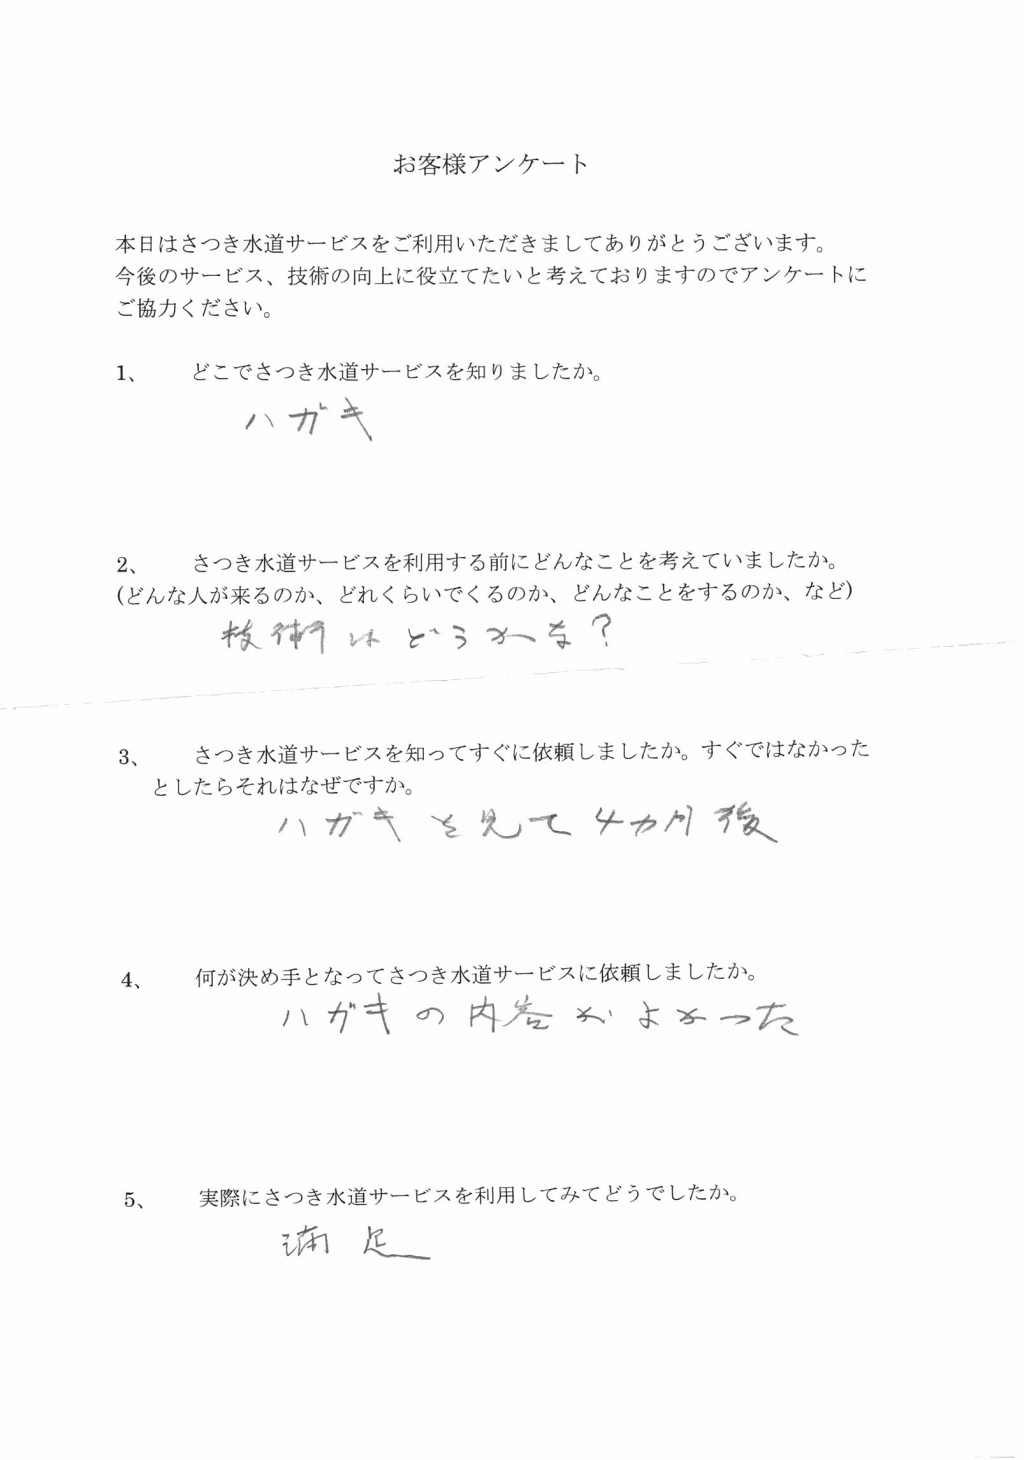 お客様アンケート
本日はさつき水道サービスをご利用いただきましてありがとうございます。
今後のサービス、技術の向上に役立てたいと考えておりますのでアンケートに
ご協力ください。
1、 どこでさつき水道サービスを知りましたか。
ハガキ
2、 さつき水道サービスを利用する前にどんなことを考えていましたか。
(どんな人が来るのか、どれくらいでくるのか、どんなことをするのか、など)
技術はどうかな?
3、 さつき水道サービスを知ってすぐに依頼しましたか。すぐではなかった
としたらそれはなぜですか。
ハガキを見て4カ月後
4、 何が決め手となってさつき水道サービスに依頼しましたか。
ハガキの内容がよかった
5、 実際にさつき水道サービスを利用してみてどうでしたか。
満足